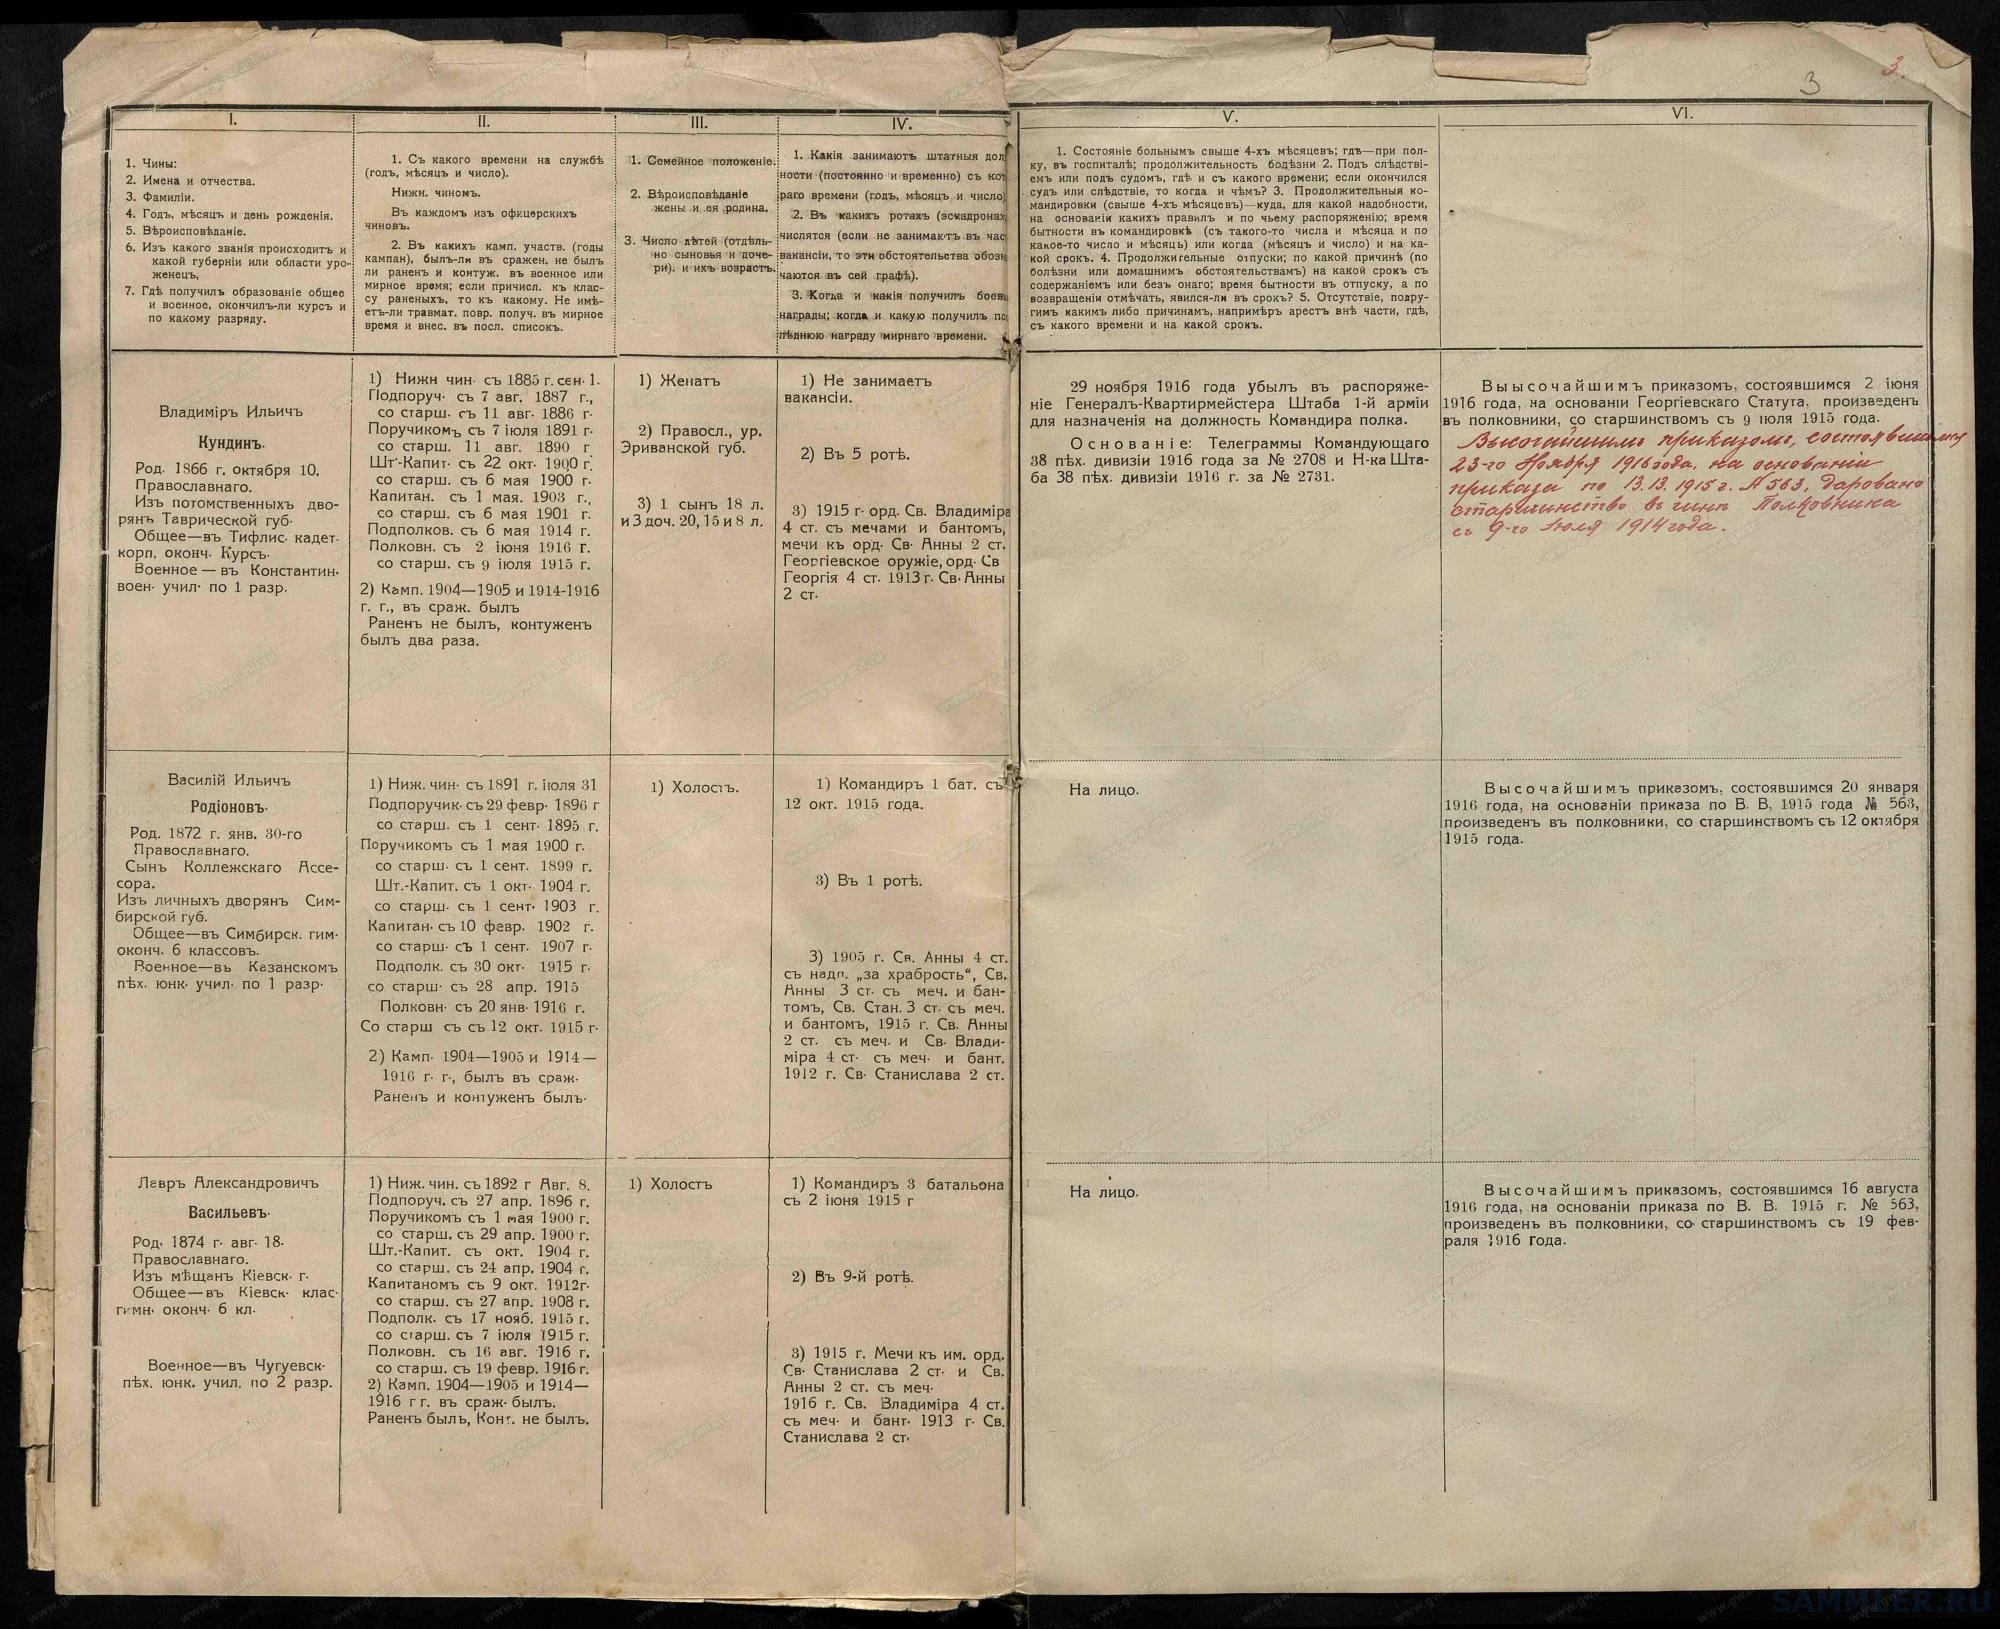 3
3.
I.
1. Чины:
2. Имена и отчества.
3. Фамиліи.
4. Годъ, мѣсяцъ и день рожденія.
5. Вѣроисповѣданіе.
6. Изъ какого званія происходитъ и
какой губерніи или области уро-
женецъ,
7. Гдѣ получилъ образованіе общее
и военное, окончилъ-ли курсъ и
по какому разряду.
II.
1. Съ какого времени на службѣ
(годъ, мѣсяцъ и число).
Нижн. чиномъ.
Въ каждомъ изъ офицерскихъ
чиновъ.
2. Въ какихъ камп. участв. (годы
кампан), былъ-ли въ сражен. не былъ
ли раненъ и контуж. въ военное или
мирное время; если причисл. къ клас-
су раненыхъ, то къ какому. Не имѣ-
етъ-ли травмат. повр. получ. въ мирное
время и внес. въ посл. списокъ.
III.
1. Семейное положеніе.
2. Вѣроисповѣданіе
жены и ея родина.
3. Число дѣтей (отдѣль-
но сыновья и доче-
ри). и ихъ возрастъ.
IV.
1. Какія занимаютъ штатныя дол
ности (постоянно и временно) съ кот
раго времени (годъ, мѣсяцъ и число)
2. Въ какихъ ротахъ (эскадронах
числятся (если не занимактъ въ час
вакансіи, то эти обстоятельства обозн
чаются въ сей графѣ).
3. Когда и какія получилъ боев
награды; когда и какую получилъ по
лѣднюю награду мирнаго времени.
V.
1. Состояніе больнымъ свыше 4-хъ мѣсяцевъ; гдѣ—при пол-
ку, въ госпиталѣ; продолжительность болѣзни 2. Подъ слѣдстві-
емъ или подъ судомъ, гдѣ и съ какого времени; если окончился
судъ или слѣдствіе, то когда и чѣмъ? 3. Продолжительныя ко-
мандировки (свыше 4-хъ мѣсяцевъ)—куда, для какой надобности,
на основаніи какихъ правилъ и по чьему распоряженію; время
бытности въ командировкѣ (съ такого-то числа и мѣсяца и по
какое-то число и мѣсяцъ) или когда (мѣсяцъ и число) и на ка-
кой срокъ. 4. Продолжительные отпуски; по какой причинѣ (по
болѣзни или домашнимъ обстоятельствамъ) на какой срокъ съ
содержаніемъ или безъ онаго; время бытности въ отпуску, а по
возвращеніи отмѣчать, явился-ли въ срокъ? 5. Отсутствіе, подру-
гимъ какимъ либо причинамъ, напримѣръ арестъ внѣ части, гдѣ,
съ какого времени и на какой срокъ.
VI.
Владиміръ Ильичъ
Кундинъ.
Род. 1866 г. октября 10.
Православнаго.
Изъ потомственныхъ дво-
рянъ Таврической губ.
Общее—въ Тифлис. кадет.
корп, оконч. Курсъ.
Военное — въ Константин.
воен. учил. по 1 разр.
1) Нижн чин. съ 1885 г. сен. 1.
Подпоруч. съ 7 авг. 1887 г.,
со старш. съ 11 авг. 1886 г.
Поручикомъ съ 7 іюля 1891 г.
со старш. 11 авг. 1890 г
Шт.-Капит. съ 22 окт. 1900 г.
со старш. съ 6 мая 1900 г.
Капитан. съ 1 мая. 1903 г.,
со старш. съ 6 мая 1901 г.
Подполков. съ 6 мая 1914 г.
Полковн. съ 2 іюня 1916 г.
со старш. съ 9 іюля 1915 г.
2) Камп. 1904—1905 и 1914-1916
г. г., въ сраж. былъ
Раненъ не былъ, контуженъ
былъ два раза.
1) Женатъ
2) Правосл., ур.
Эриванской губ.
3) 1 сынъ 18 л.
и 3 доч. 20, 15 и 8 л.
1) Не занимаетъ
вакансіи.
2) Въ 5 ротѣ.
3) 1915 г. орд. Св. Владиміра
4 ст. съ мечами и бантомъ,
мечи къ орд. Св. Анны 2 ст.
Георгіевское оружіе, орд. Св
Георгія 4 ст. 1913 г. Св. Анны
2 ст.
29 ноября 1916 года убылъ въ распоряже-
ніе Генералъ-Квартирмейстера Штаба 1-й арміи
для назначенія на должность Командира полка.
Основаніе: Телеграммы Командующаго
38 пѣх. дивизіи 1916 года за № 2708 и Н-ка Шта-
ба 38 пѣх. дивизіи 1916 г. за № 2731.
Выысочайшимъ приказомъ, состоявшимся 2 іюня
1916 года, на основаніи Георгіевскаго Статута, произведенъ
въ полковники, со старшинствомъ съ 9 іюля 1915 года.
Высочайшимъ приказомъ, состоявшимся
23-го Ноября 1916 года, на основаніи
приказа по 13.13. 1915 г. № 563, даровано
старшинство въ чинѣ Полковника
съ 9-го Іюля 1914 года.
Василій Ильичъ
Родіоновъ.
Род. 1872 г. янв. 30-го
Православнаго.
Сынъ Коллежскаго Ассе-
сора.
Изъ личныхъ дворянъ Сим-
бирской губ.
Общее—въ Симбирск. гим.
оконч. 6 классовъ.
Военное—въ Казанскомъ
пѣх. юнк. учил. по 1 разр.
1) Ниж. чин. съ 1891 г. іюля 31
Подпоручик. съ 29 февр. 1896 г
со старш. съ 1 сент. 1895 г.
Поручикомъ съ 1 мая 1900 г.
со старш. съ 1 сент. 1899 г.
Шт.-Капит. съ 1 окт. 1904 г.
со старш. съ 1 сент. 1903 г.
Капитан. съ 10 февр. 1902 г.
со старш. съ 1 сент. 1907 г.
Подполк. съ 30 окт. 1915 г.
со старш. съ 28 апр. 1915
Полковн. съ 20 янв. 1916 г.
Со старш съ съ 12 окт. 1915 г.
2) Камп. 1904—1905 и 1914—
1916 г. г., былъ въ сраж.
Раненъ и контуженъ былъ.
1) Холостъ.
1) Командиръ 1 бат. съ
12 окт. 1915 года.
3) Въ 1 ротѣ.
3) 1905 г. Св. Анны 4 ст.
съ надп. „за храбрость“, Св.
Анны 3 ст. съ меч. и бан-
томъ, Св. Стан. 3 ст. съ меч.
и бантомъ, 1915 г. Св. Анны
2 ст. съ меч. и Св. Влади-
міра 4 ст. съ меч. и бант.
1912 г. Св. Станислава 2 ст.
На лицо.
Высочайшимъ приказомъ, состоявшимся 20 января
1916 года, на основаніи приказа по В. В. 1915 года № 563,
произведенъ въ полковники, со старшинствомъ съ 12 октября
1915 года.
Лавръ Александровичъ
Васильевъ.
Род. 1874 г. авг. 18.
Православнаго.
Изъ мѣщанъ Кіевск. г.
Общее—въ Кіевск. клас.
гимн. оконч. 6 кл.
Военное—въ Чугуевск.
пѣх. юнк. учил. по 2 разр.
1) Ниж. чин. съ 1892 г Авг. 8.
Подпоруч. съ 27 апр. 1896 г.
Поручикомъ съ 1 мая 1900 г.
со старш. съ 29 апр. 1900 г.
Шт.-Капит. съ окт. 1904 г.
со старш. съ 24 апр. 1904 г.
Капитаномъ съ 9 окт. 1912г.
со старш. съ 27 апр. 1908 г.
Подполк. съ 17 нояб. 1915 г.
со старш. съ 7 іюля 1915 г.
Полковн. съ 16 авг. 1916 г.
со старш. съ 19 февр. 1916 г.
2) Камп. 1904—1905 и 1914—
1916 г г. въ сраж. былъ.
Раненъ былъ, Конт. не былъ.
1) Холостъ
1) Командиръ 3 батальона
съ 2 іюня 1915 г
2) Въ 9-й ротѣ.
3) 1915 г. Мечи къ им. орд.
Св. Станислава 2 ст. и Св.
Анны 2 ст. съ меч.
1916 г. Св. Владиміра 4 ст.
съ меч. и бант. 1913 г. Св.
Станислава 2 ст.
На лицо.
Высочайшимъ приказомъ, состоявшимся 16 августа
1916 года, на основаніи приказа по В. В. 1915 г. № 563,
произведенъ въ полковники, со старшинствомъ съ 19 фев-
раля 1916 года.
SAMMLER.RU